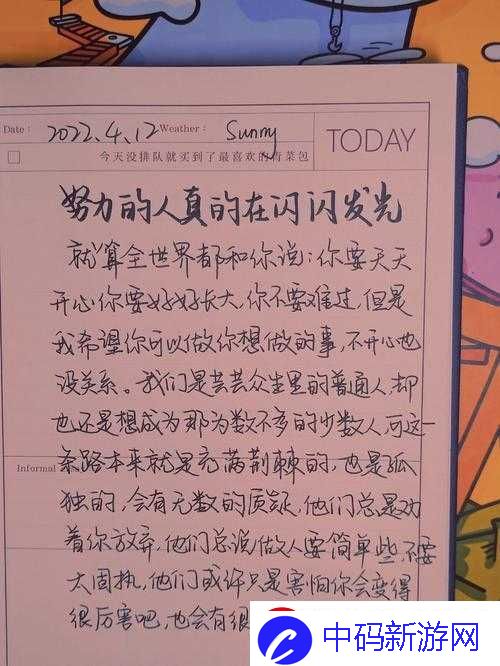 Date: 2022.4.12 Weather: Sunny
TODAY
今天没排队就买到了最喜欢的青菜包
努力的人真的在闪闪发光
就算全世界都和你说：你要天天
开心你要好好长大，你不要难过，但是
我希望你可以做你想做的事，不开心也
没关系。我们是芸芸众生里的普通人，却
也还是想成为那为数不多的少数人，可这一
条路本来就是充满荆棘的，也是孤
Informal
独的，会有无数的质疑，他们总是劝
着你放弃，他们总说做人要简单些，不要
太固执，他们或许只是害怕你会变得
很厉害吧，也会有很
中码新游网